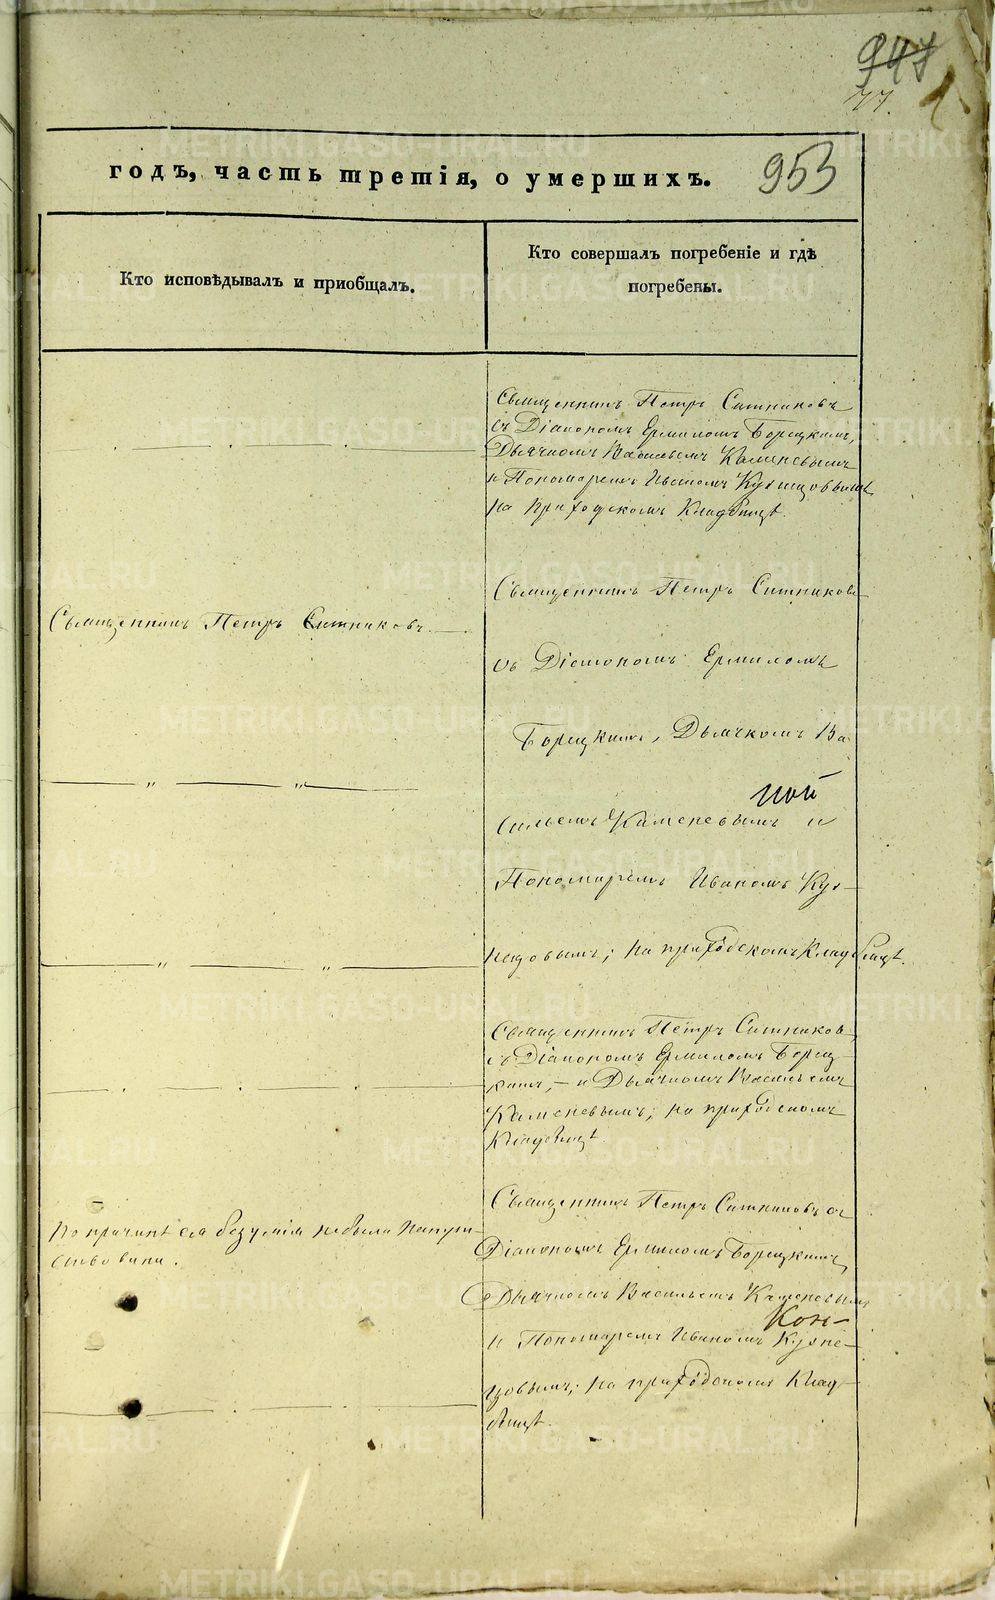 947
77. 1
годъ, часть третія, о умершихъ. 953
Кто исповѣдывалъ и приобщалъ.
Кто совершалъ погребеніе и гдѣ
погребены.
Священникъ Петръ Ситниковъ
съ Діакономъ Ермиломъ Борецкимъ,
Дьячкомъ Васильемъ Каменевымъ
и Пономаремъ Иваномъ Кузнецовымъ
на приходскомъ Кладбищѣ.
Священникъ Петръ Ситниковъ
Священникъ Петръ Ситниковъ
съ Діакономъ Ермиломъ
Борецкимъ, Дьячкомъ Ва
ной
сильемъ Каменевымъ и
Пономаремъ Иваномъ Куз-
нецовымъ; на приходскомъ Кладбищѣ.
Священникъ Петръ Ситниковъ
съ Діакономъ Ермиломъ Борец-
кимъ, - и Дьячкомъ Васильемъ
Каменевымъ; на приходскомъ
Кладбищѣ.
По причинѣ ея безумія небыла напут-
ствована.
Священникъ Петръ Ситниковъ съ
Діакономъ Ермиломъ Борецкимъ,
Дьячкомъ Васильемъ Каменевымъ
Кон-
и Пономаремъ Иваномъ Кузне-
цовымъ; на приходскомъ Клад-
бищѣ.
METRIKI.GASO-URAL.RU